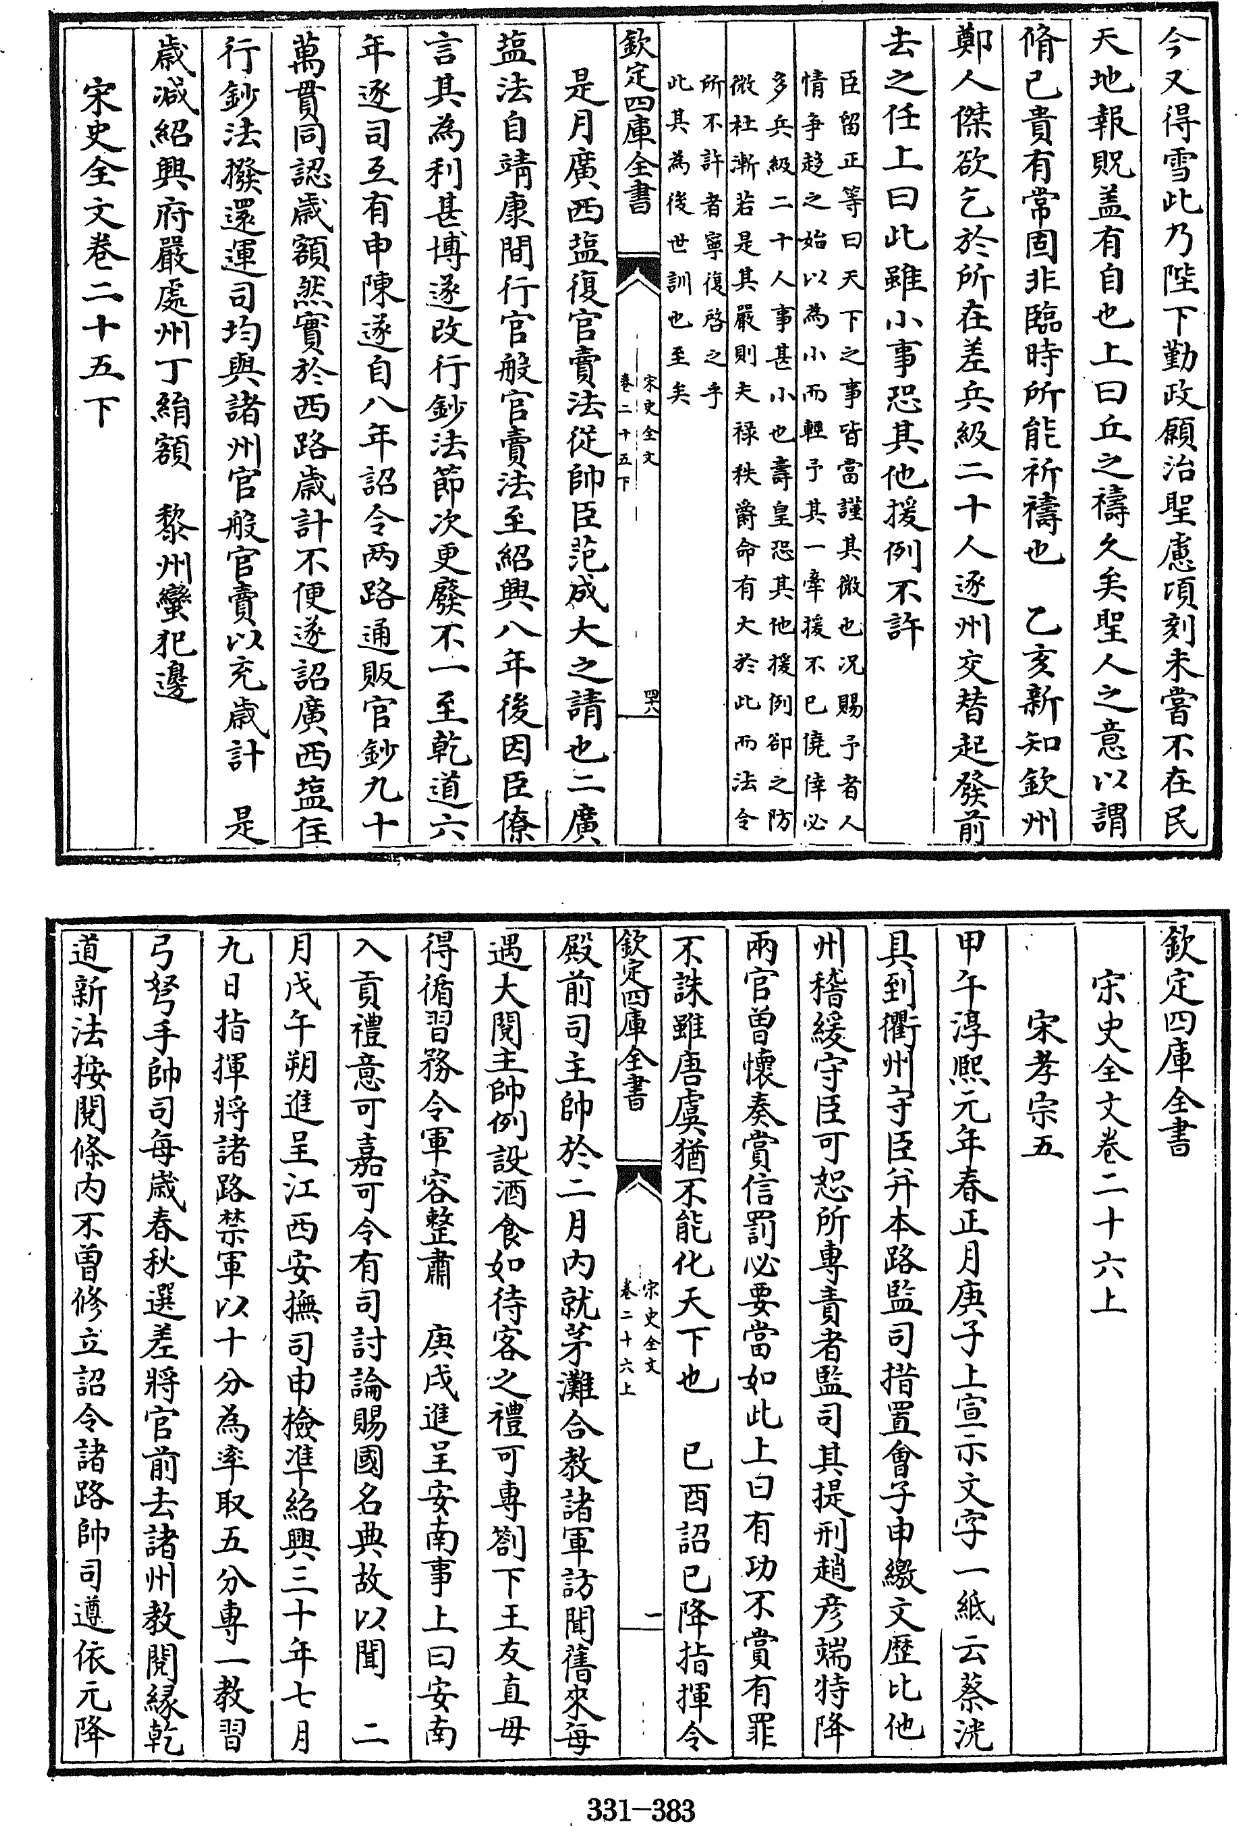 今又得雪此乃陛下勤政願治聖慮頃刻未嘗不在民
天地報貺盖有自也上曰丘之禱久矣聖人之意以謂
脩己貴有常固非臨時所能祈禱也　乙亥新知欽州
鄭人傑欲乞於所在差兵級二十人逐州交替起發前
去之任上曰此雖小事恐其他援例不許
臣留正等曰天下之事皆當謹其微也况賜予者人
情争趍之始以為小而輕予其一牽援不已僥倖必
多兵級二十人事甚小也壽皇恐其他援例卻之防
微杜漸若是其嚴則夫祿秩爵命有大於此而法令
所不許者寧復啓之乎
此其為後世訓也至矣
欽定四庫全書
宋史全文
卷二十五下
四十八
是月廣西塩復官賣法從帥臣范成大之請也二廣
塩法自靖康間行官般官賣法至紹興八年後因臣僚
言其為利甚博遂改行鈔法節次更廢不一至乾道六
年逐司互有申陳遂自八年詔令两路通販官鈔九十
萬貫同認歳額然實於西路歳計不便遂詔廣西塩住
行鈔法撥還運司均與諸州官般官賣以充歳計　是
歳減紹興府嚴處州丁絹額　黎州蠻犯邊
宋史全文卷二十五下
欽定四庫全書
宋史全文卷二十六上
宋孝宗五
甲午淳熙元年春正月庚子上宣示文字一紙云蔡洸
具到衢州守臣并本路監司措置會子申繳文歷比他
州稽緩守臣可恕所專責者監司其提刑趙彦端特降
兩官曽懷奏賞信罰必要當如此上曰有功不賞有罪
不誅雖唐虞猶不能化天下也　已酉詔已降指揮令
欽定四庫全書
宋史全文
卷二十六上
一
殿前司主帥於二月内就茅灘合教諸軍訪聞舊來每
遇大閱主帥例設酒食如待客之禮可專劄下王友直毋
得循習務令軍容整肅　庚戌進呈安南事上曰安南
入貢禮意可嘉可令有司討論賜國名典故以聞　二
月戊午朔進呈江西安撫司申檢準紹興三十年七月
九日指揮將諸路禁軍以十分為率取五分専一教習
弓弩手帥司每歳春秋選差將官前去諸州教閱縁乾
道新法按閱條内不曽修立詔令諸路帥司遵依元降
331-383